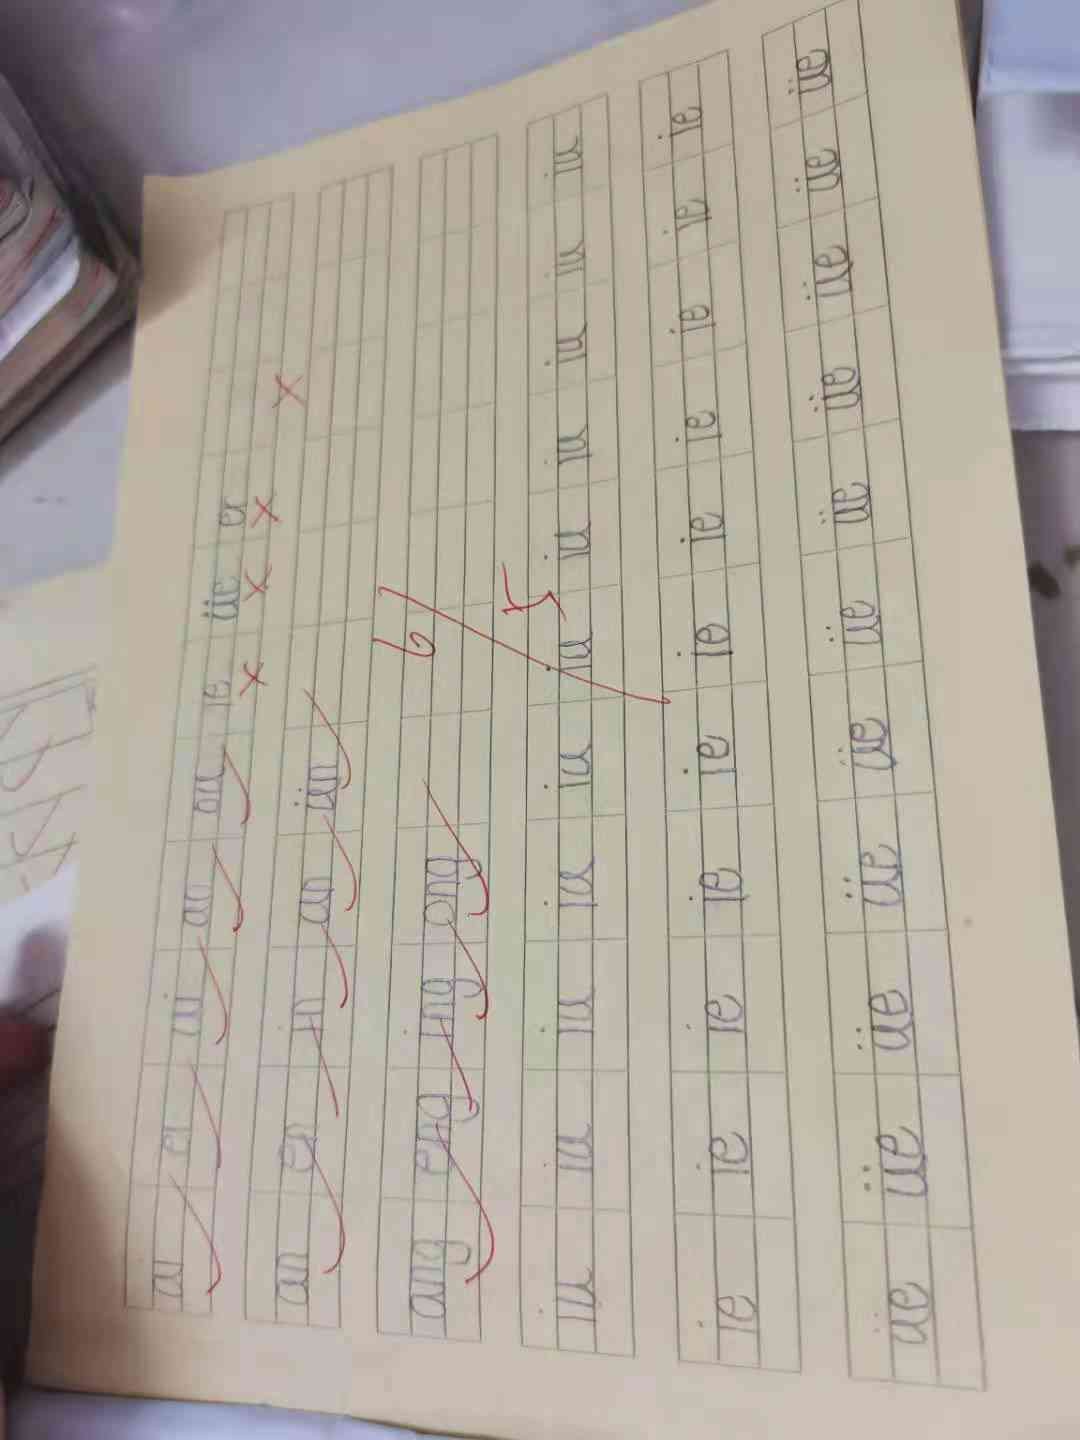 ai ei ui ao ou ie üe er
an en in un ün
ang eng ing ong
iu iu iu iu iu iu iu iu iu iu iu
ie ie ie ie ie ie ie ie ie ie ie
üe üe üe üe üe üe üe üe üe üe üe